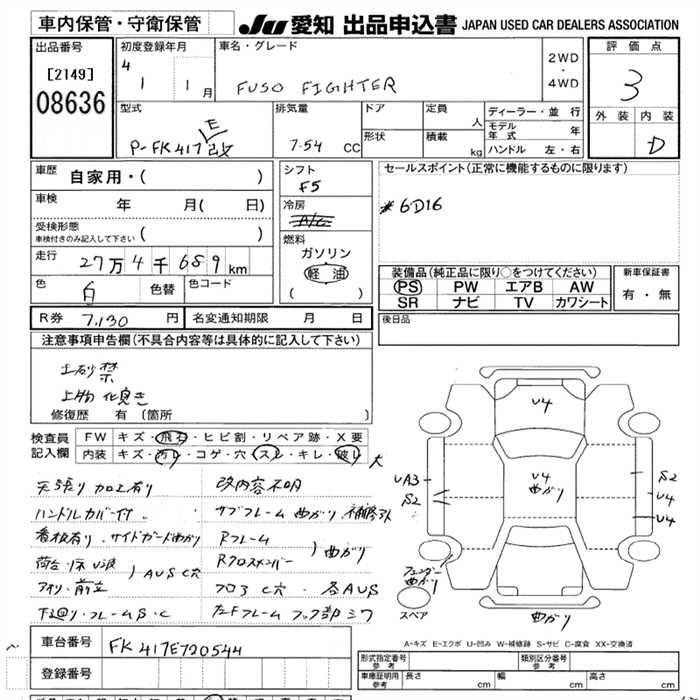 車内保管・守衛保管
JU 愛知 出品申込書 JAPAN USED CAR DEALERS ASSOCIATION
出品番号
[2149]
08636
初度登録年月
4 1 1月
車名・グレード
FUSO FIGHTER
2WD
・
4WD
評価点
3
外装 内装
D
型式
E
P-FK417改
排気量
7.54 CC
ドア
形状
定員 人
積載 kg
ディーラー・並行
モデル年式 年
ハンドル 左・右
車歴 自家用・( )
車検 年 月( 日)
受検形態
車検付きのみ記入して下さい ( )
走行 27万4千689km
色 白 色替 色コード
シフト
F5
冷房
A/C
燃料
ガソリン
軽油
( )
セールスポイント(正常に機能するものに限ります)
#6D16
装備品(純正品に限り○をつけてください)
PS PW エアB AW
SR ナビ TV カワシート
新車保証書
有・無
R券 7,130 円 名変通知期限 月 日
後日品
注意事項申告欄(不具合内容等は具体的に記入して下さい)
土砂禁
上物 化良き
修復歴 有〔箇所 〕
検査員
記入欄
FW キズ・飛石・ヒビ割・リペア跡・X要
内装 キズ・汚レ・コゲ・穴・スレ・キレ・破レ 大
天張り加工有り 改内容不明
ハンドルカバー付 サブフレーム曲がり 補修跡
看板有り・サイドガード曲がり Rフレーム
荷台・床U波 Rクロスメンバー )曲がり
アオリ・前立 )AUSC穴 フロアC穴・各AUS
下廻り・フレームS・C 左Fフレームフック部シワ
U4
U4
曲がり
UA3
S2
S2
U4
U4
フェンダー
曲がり
スペア
曲がり
A-キズ E-エクボ U-凹み W-補修跡 S-サビ C-腐食 XX-交換済
車台番号 FK417E720544
登録番号
形式指定番号
参考
類別区分番号
参考
車庫証明用
参考
長さ cm 幅 cm 高さ cm